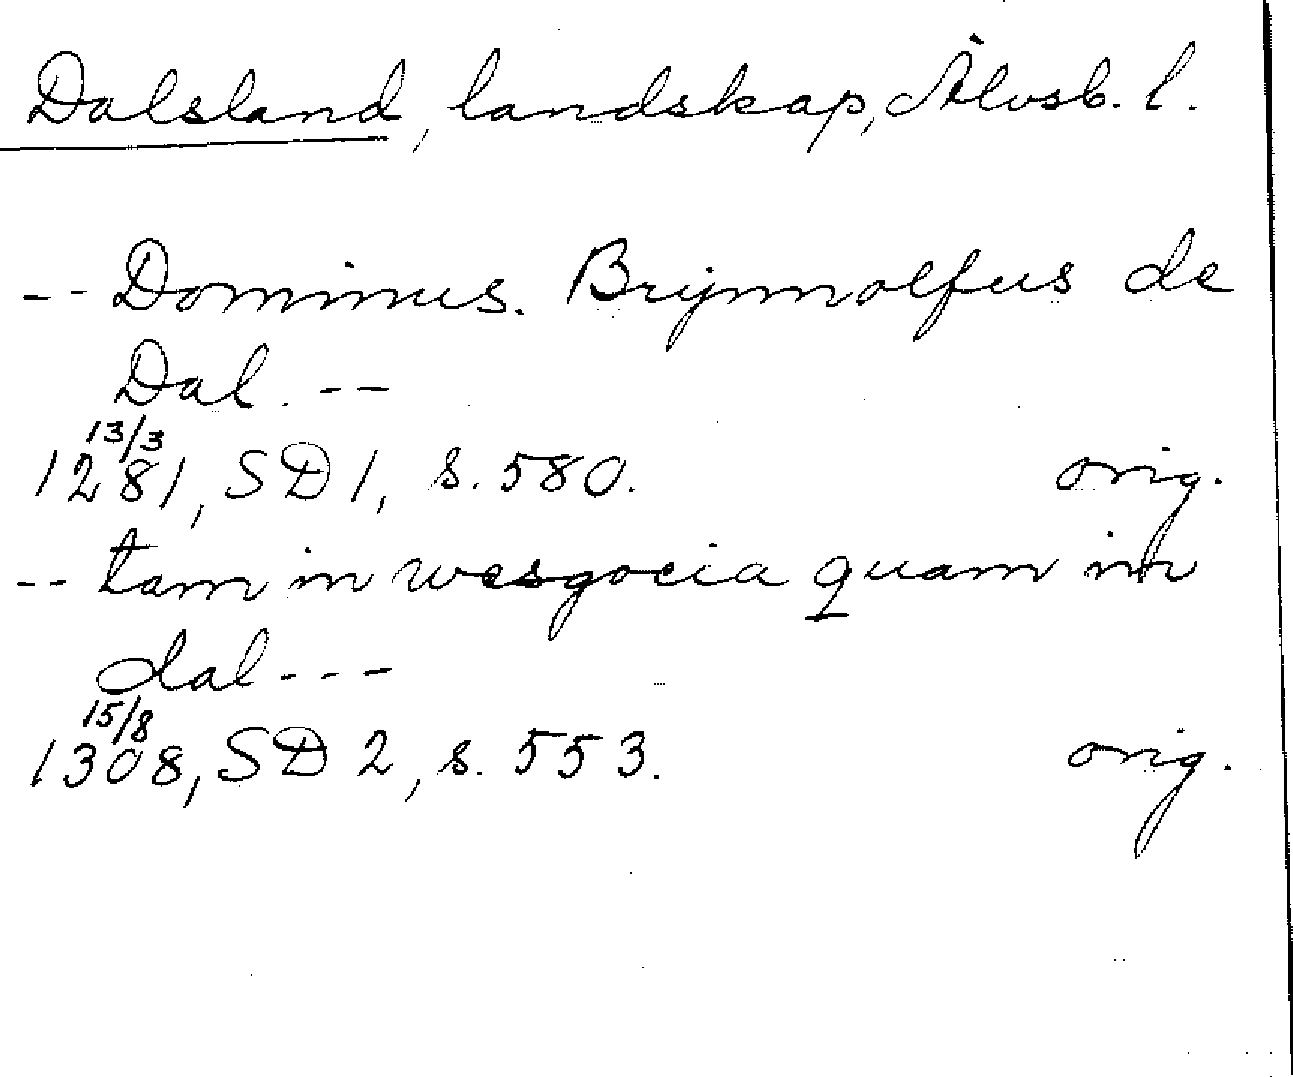 Dalsland, landskap, Älvsb. l.
-- Dominus. Brynnolfus de
Dal. --
13/3
1281, SD 1, s. 580. orig.
-- tam in wesgocia quam in
dal ---
15/8
1308, SD 2, s. 553. orig.